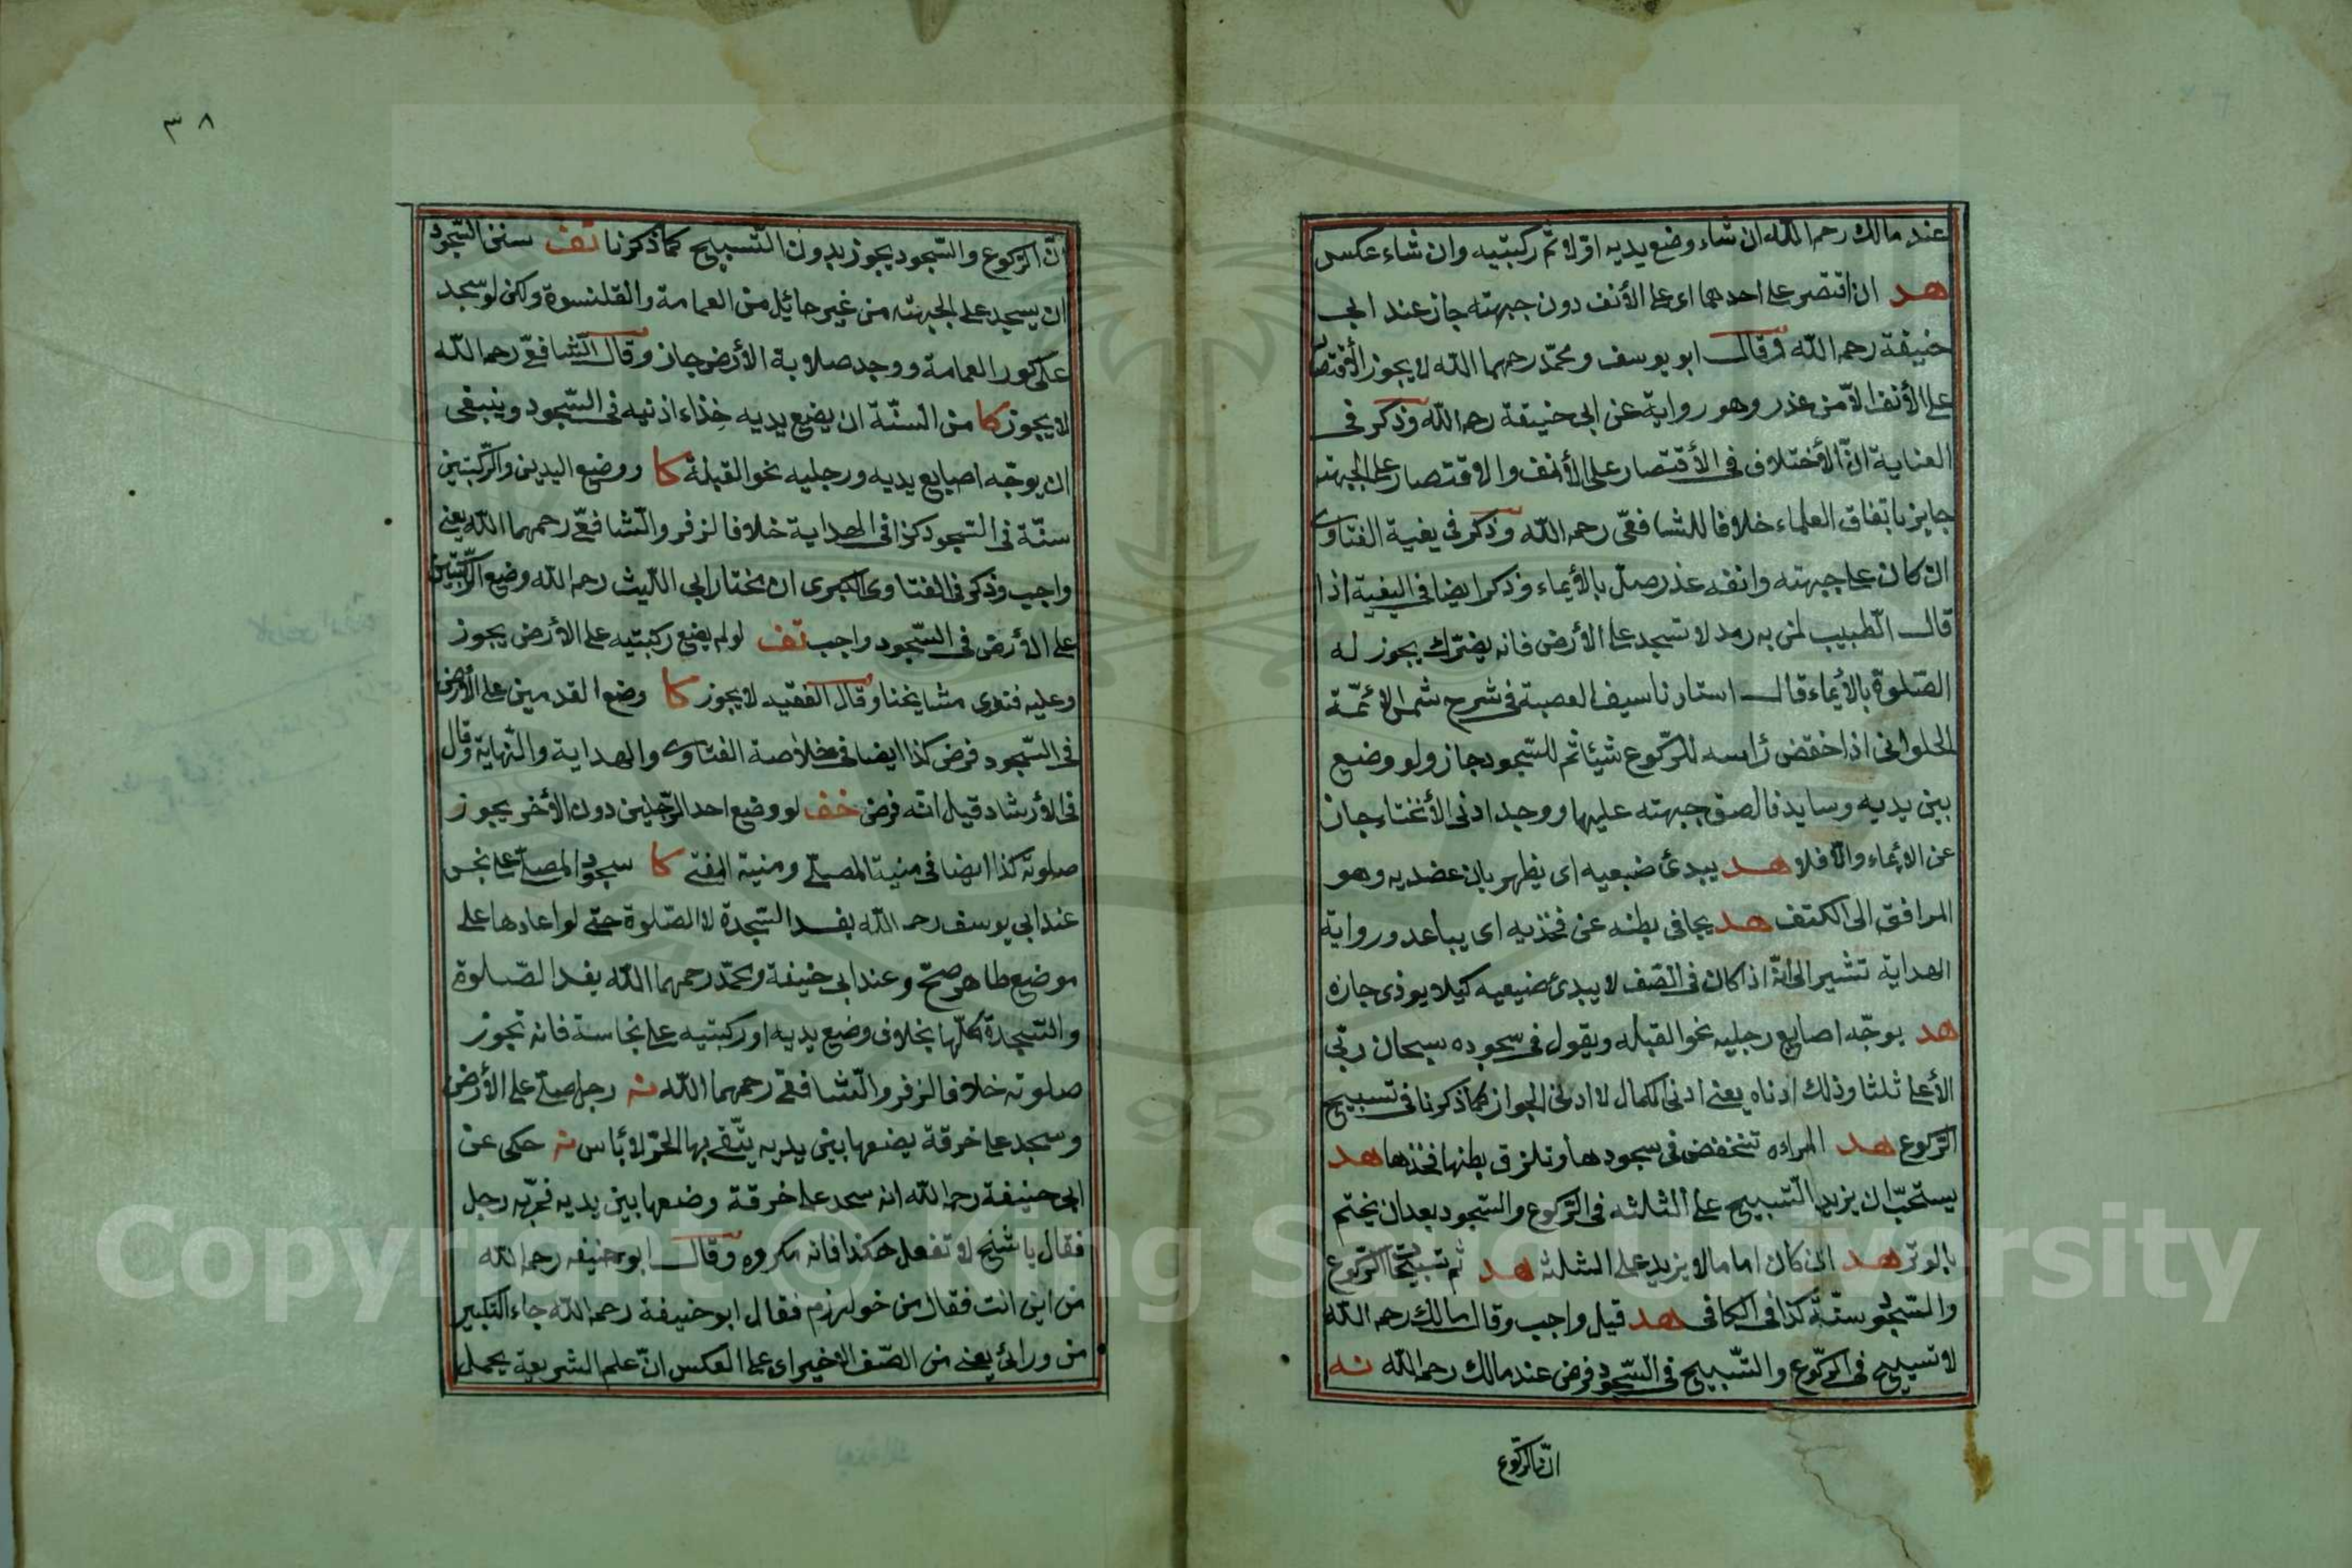 عند مالك رحمه الله ان شاء وضع يديه اوّلا ثم ركبتيه وان شاء عكس
هد ان اقتصر على احدهما اى على الأنف دون جبهته جاز عند ابي
حنيفة رحمه الله وقال ابو يوسف ومحمّد رحمهما الله لا يجوز الأقتصار
على الأنف الاّ من عذر وهو رواية عن ابى حنيفة رحمه الله وذكر فى
العناية انّ الأختلاف فى الأقتصار على الأنف والاقتصار على الجبهته
جايز باتفاق العلماء خلافا للشافعّى رحمه الله وذكر فى بغية الفتاوى
ان كان على جبهته وانفه عذر صلّى بالأيماء وذكر ايضا فى البغية اذا
قال الطّبيب لمن به رمد لا تسجد على الأرض فانه يضرّك يجوز له
الصّلوة بالأيماء قال استادنا سيف العصبة فى شرح شمس الأئمّة
الحلوانى اذا خفض رأسه للرّكوع شيئا ثم للسّجود جاز ولو وضع
بين يديه وسايد فالصق جبهته عليها ووجد ادنى الأنحناء جاز
عن الايماء والاّ فلا هد يبدئ ضبعيه اى يظهر بان عضديه وهو
المرافق الى الكتف هد يجافى بطنه عن فخذيه اى يباعد ورواية
الهداية تشير الى انّه اذا كان فى الصّف لا يبدئ ضبعيه كيلا يوذى جاره
هد يوجّه اصابع رجليه نحو القبله ويقول فى سجوده سبحان ربّي
الأعلى ثلثا وذلك ادناه يعنى ادنى الكمال لا ادنى الجواز كما ذكرنا فى تسبيح
الرّكوع هد المراءه تنخفض فى سجودها وتلزق بطنها فخذها هد
يستحبّ ان يزيد التّسبيح على الثلثه فى الرّكوع والسّجود بعد ان يختم
بالوتر هد ان كان اماما لا يزيد على الثلثه هد ثم تسبيحا الرّكوع
والسّجود سنّة كذا فى الكافى هد قيل واجب وقال مالك رحمه الله
لا تسبيح فى الرّكوع والتّسبيح فى السّجود فرض عند مالك رحمه الله نه
انّ الرّكوع
٣٨
انّ الرّكوع والسّجود يجوز بدون التّسبيح كما ذكرنا تف سنن السّجود
ان يسجد على الجبهته من غير حائيل من العمامة والقلنسوة ولكن لو سجد
على كور العمامة ووجد صلابة الأرض جاز وقال الشّافعّى رحمه الله
لا يجوز كا من السّنّة ان يضع يديه حذاء اذنيه فى السّجود وينبغى
ان يوجّه اصابع يديه ورجليه نحو القبلة كا ووضع اليدين والرّكبتين
سنّة فى السّجود كذا فى الهداية خلافا لزفر والشّافعّى رحمهما الله يعنى
واجب وذكر فى الفتاوى الكبرى ان مختار ابي اللّيث رحمه الله وضع الرّكبتين
على الأرض فى السّجود واجب تف لو لم يضع ركبتيه على الأرض يجوز
وعليه فتوى مشايخنا وقال الفقيه لا يجوز كا وضع القدمين على الأرض
فى السّجود فرض كذا ايضا فى خلاصة الفتاوى والهداية والنّهاية وقال
فى الأرشاد قيل انّه فرض خف لو وضع احد الرّجلين دون الأخر يجوز
صلوته كذا ايضا فى منية المصلّى ومنية المفتى كا سجود المصلّى على نجس
عند ابي يوسف رحمه الله يفسد السّجدة لا الصّلوة حتى لو اعادها على
موضع طاهر صحّ وعند ابى حنيفة ومحمّد رحمهما الله يفسد الصّلوة
والسّجدة كلّها بخلاف وضع يديه او ركبتيه على نجاسة فانه تجوز
صلوته خلافا لزفر والشّافعّى رحمهما الله نه رجل صلّى على الأرض
وسجد على خرقة يضعها بين يديه يتّقى بها الحرّ لا بأس نه حكى عن
ابى حنيفة رحمه الله انه سجد على خرقة وضعها بين يديه فمرّ به رجل
فقال يا شيخ لا تفعل هكذا فانه مكروه وقال ابو حنيفه رحمه الله
من اين انت فقال من خوارزم فقال ابو حنيفة رحمه الله جاء التكبير
من ورائى يعنى من الصّف الاخير اى على العكس انّ علم الشريعة يحمل
Copyright © King Saud University